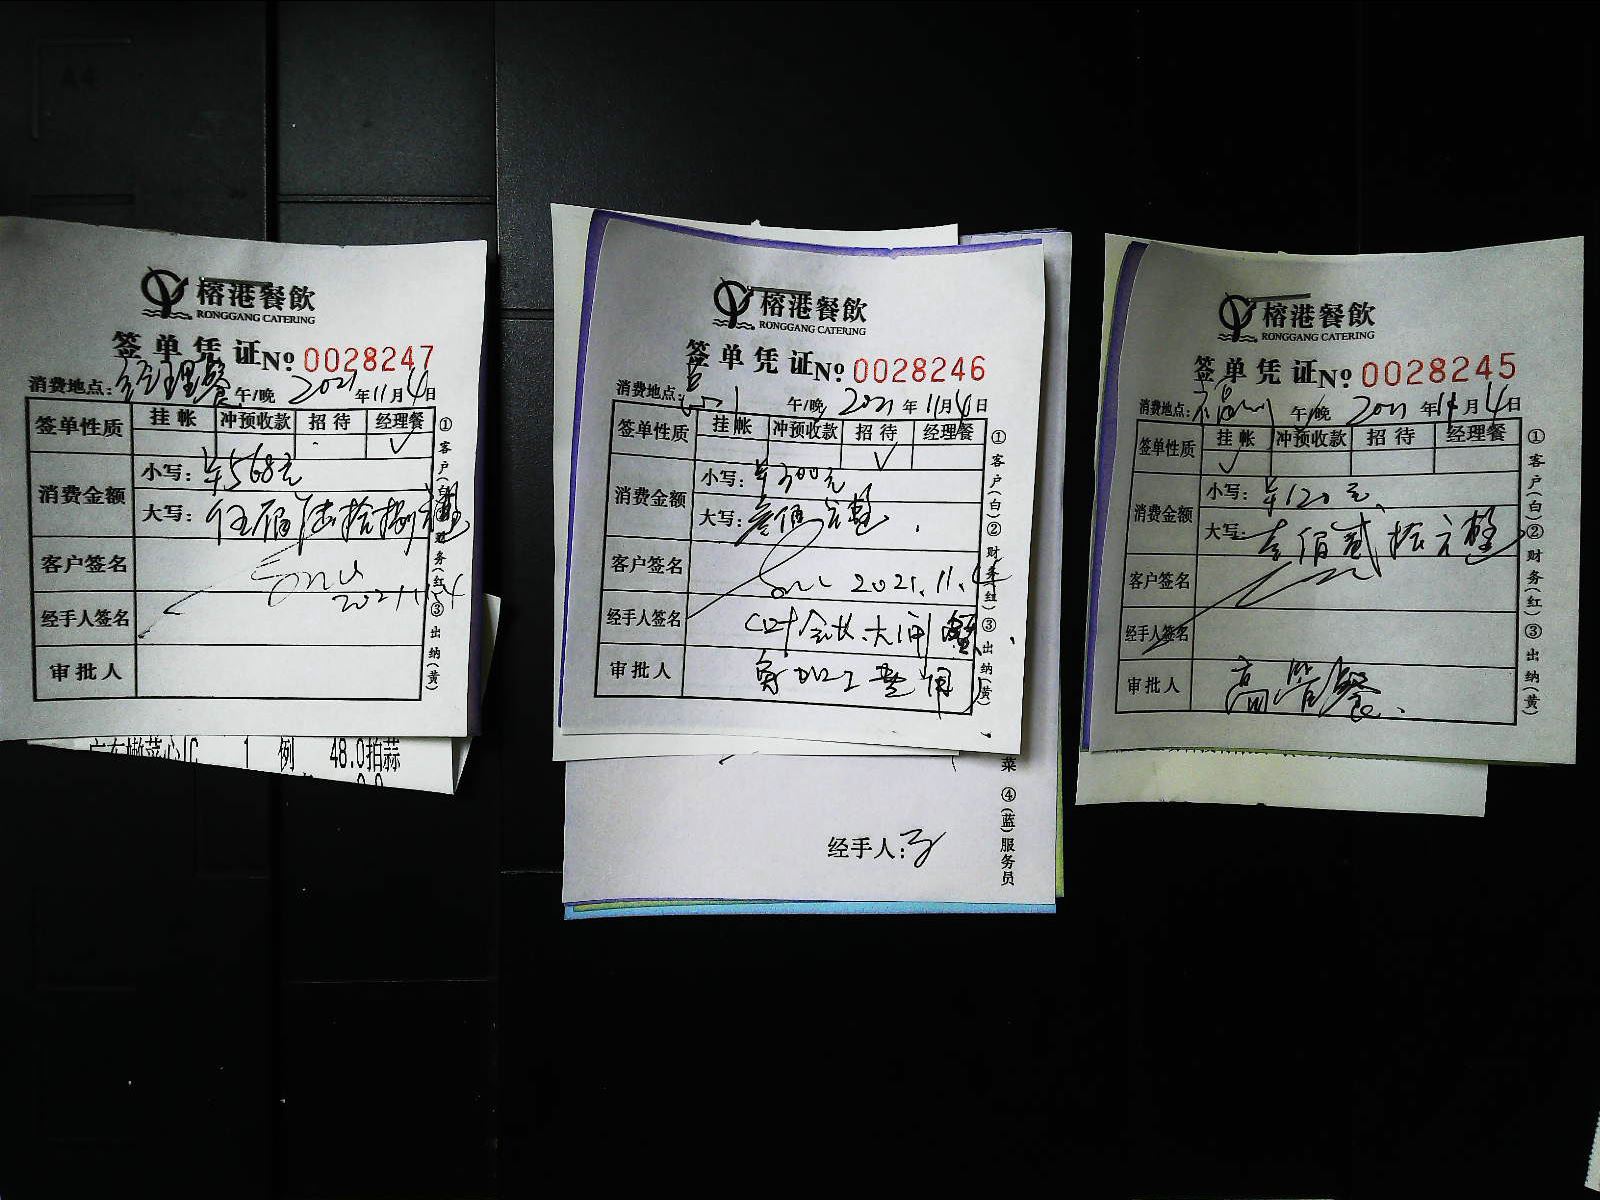 榕港餐飲
RONGGANG CATERING
签单凭证 No 0028247
消费地点：经理餐 午/晚 2021年11月4日
签单性质 挂帐 冲预收款 招待 经理餐
✓
消费金额 小写：¥568元
大写：伍佰陆拾捌元整
客户签名
2021.11.4
经手人签名
审批人
①客户(白)②财务(红)③出纳(黄)
广东嫩菜心IC 1 例 48.0拍蒜
榕港餐飲
RONGGANG CATERING
签单凭证 No 0028246
消费地点： 午/晚 2021年11月4日
签单性质 挂帐 冲预收款 招待 经理餐
✓
消费金额 小写：¥300元
大写：叁佰元整
客户签名 2021.11.4
经手人签名
审批人
①客户(白)②财务(红)③出纳(黄)
菜 ④(蓝)服务员
经手人：
榕港餐飲
RONGGANG CATERING
签单凭证 No 0028245
消费地点：福州 午/晚 2021年11月4日
签单性质 挂帐 冲预收款 招待 经理餐
✓
消费金额 小写：¥120元
大写：壹佰贰拾元整
客户签名
经手人签名
审批人 高管餐
①客户(白)②财务(红)③出纳(黄)